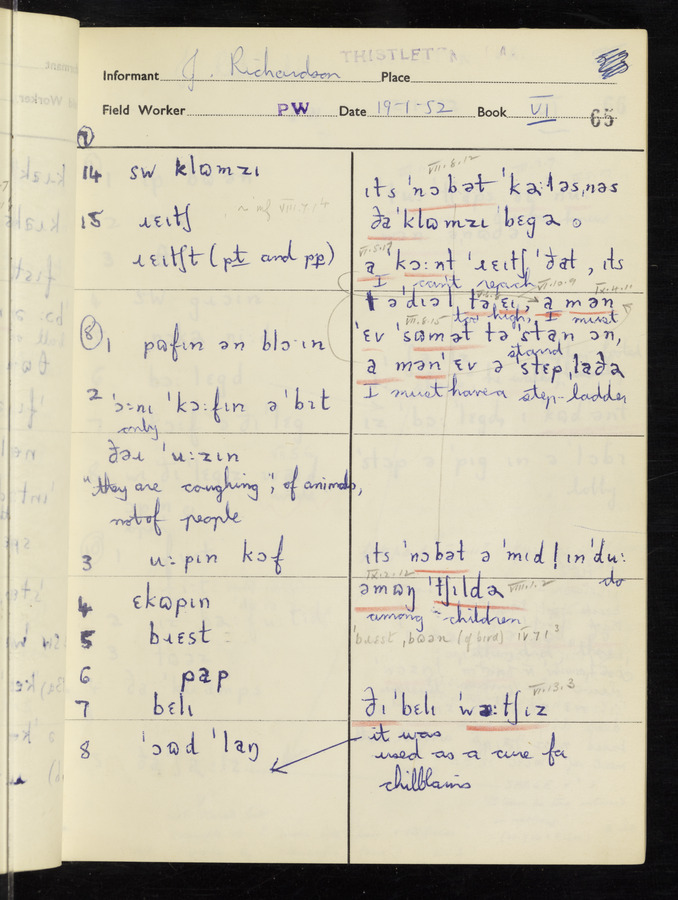 Informant J. Richardson Place
Field Worker PW Date 19-1-52 Book VI 65
7
14 sw klɒmzɪ
15 ɹɛɪtʃ
ɹɛɪtʃt (pt and pp)
8 1 pɒfɪn ən blɔ·ɪn
2 'ɔ:nɪ 'kɔ:fɪn ə 'bɪt
only
ðəɪ 'u:zɪn
"they are coughing"; of animals,
not of people
3 u:pɪn kɔf
4 ɛkɒpɪn
5 bɹɛst
6 pap
7 bɛlɪ
8 'ɔɒd 'laŋ
VII.8.12
ɪts 'nɔbət 'kə:ləs,nəs
ðə 'klɒmzɪ 'bɛgə
a 'kɔ:nt 'ɹɛɪtʃ 'ðat, ɪts
I can't reach
too high, I must
'ɛv 'sɒmət tə 'stan ɔn,
stand
a mən 'ɛv ə 'stɛp,laðə
I must have a step-ladder
ɪts 'nɔbət ə 'mɪd! ɪn 'du:
do
IX.2.12
əmɒŋ 'tʃɪldə VIII.1.2
among children
'bɹɛst, bɒən (of bird) IV.7.1
VI.13.3
ðɪ 'bɛlɪ 'wə:tʃɪz
it was
used as a cure for
chilblains